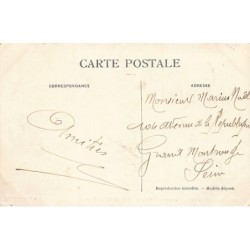 CARTE POSTALE
CORRESPONDANCE
ADRESSE
Monsieur Marius
104 avenue de la République
Grand Montrouge
Seine
Amitiés
Reproduction interdite. - Modèle déposé.